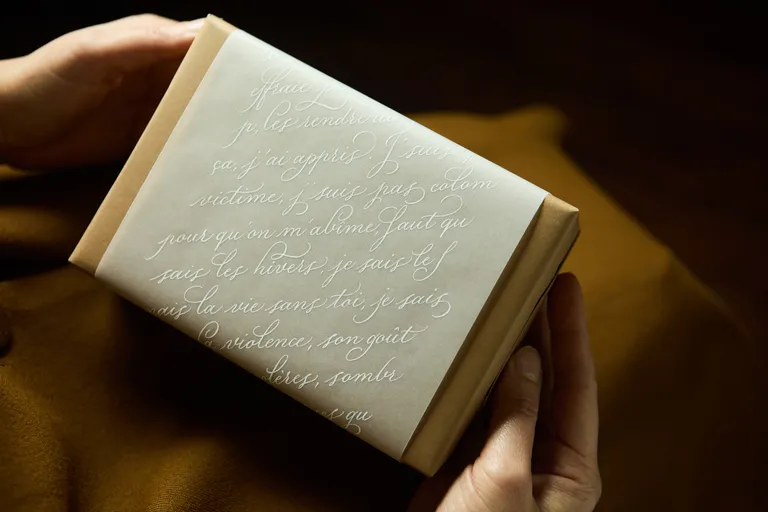 effrace
p, les rendre
ça, j'ai appris. J'suis
victime, j'suis pas colom
pour qu'on m'abîme, faut qu
sais les hivers, je sais le f
ais la vie sans toi, je sais
la violence, son goût
lères, sombr
es qu